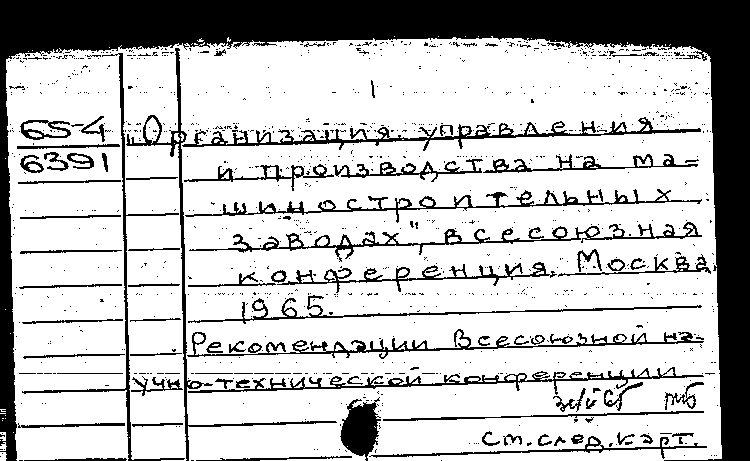 1
65-4 „Организация управления
6391 и производства на ма=
шиностроительных
заводах", всесоюзная
конференция. Москва,
1965.
Рекомендации Всесоюзной на-
учно-технической конференции
см.след.карт.